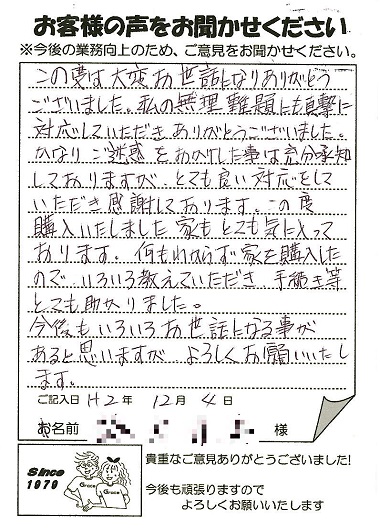 お客様の声をお聞かせください
※今後の業務向上のため、ご意見をお聞かせください。
この度は大変お世話になりありがとう
ございました。私の無理難題にも真摯に
対応していただきありがとうございました。
かなりご迷惑をおかけした事は充分承知
しておりますが、とても良い対応をして
いただき感謝しております。この度
購入いたしました家もとても気に入って
おります。何もわからず家を購入した
ので、いろいろ教えていただき手続き等
とても助かりました。
今後もいろいろお世話になる事が
あると思いますがよろしくお願いいたし
ます。
ご記入日 H2年 12月 4日
お名前 様
Since
1979
Grace
Grace
貴重なご意見ありがとうございました!
今後も頑張りますので
よろしくお願いいたします